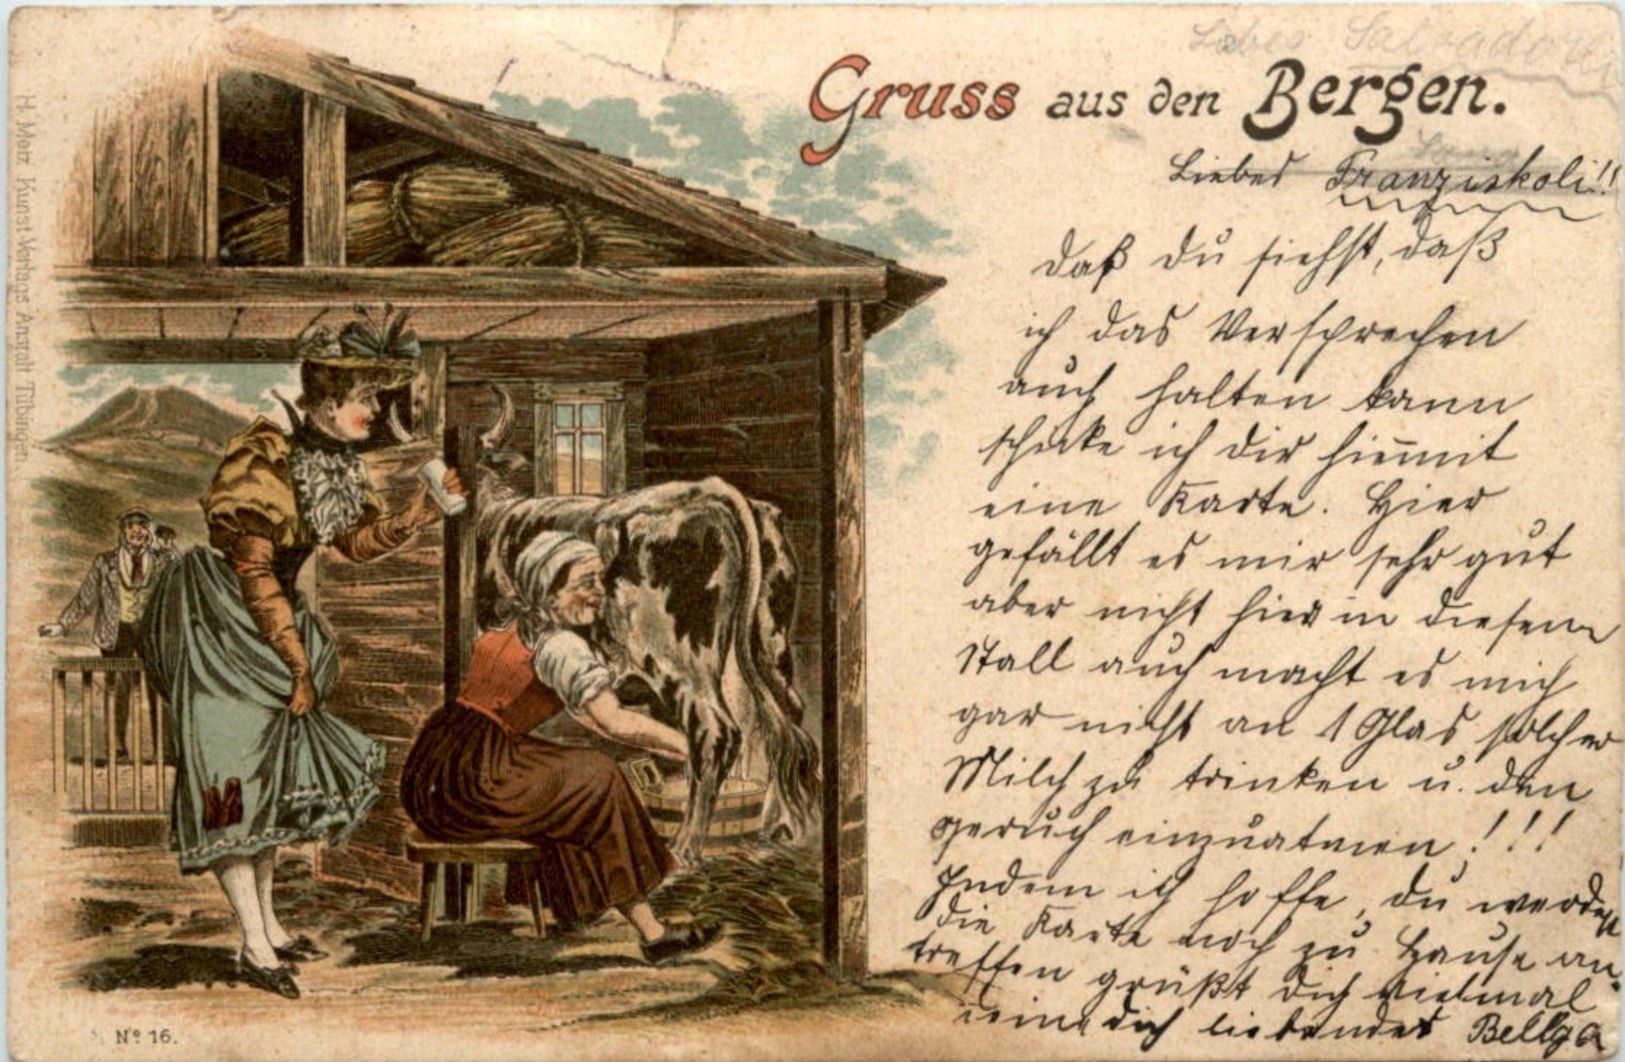 Gruss aus den Bergen.
Liebes Franziskoli!!
Daß du siehst, daß
ich das Versprechen
auch halten kann
schicke ich dir hiemit
eine Karte. Hier
gefällt es mir sehr gut
aber nicht hier in diesem
Stall auch macht es mich
gar nicht an 1 Glas solcher
Milch zu trinken u. den
geruch einzuatmen!!!
Indem ich hoffe, du werdest
die Karte noch zu Hause an-
treffen grüßt dich vielmal
deine dich liebende
H. Metz Kunst-Verlags Anstalt Tübingen.
No. 16.